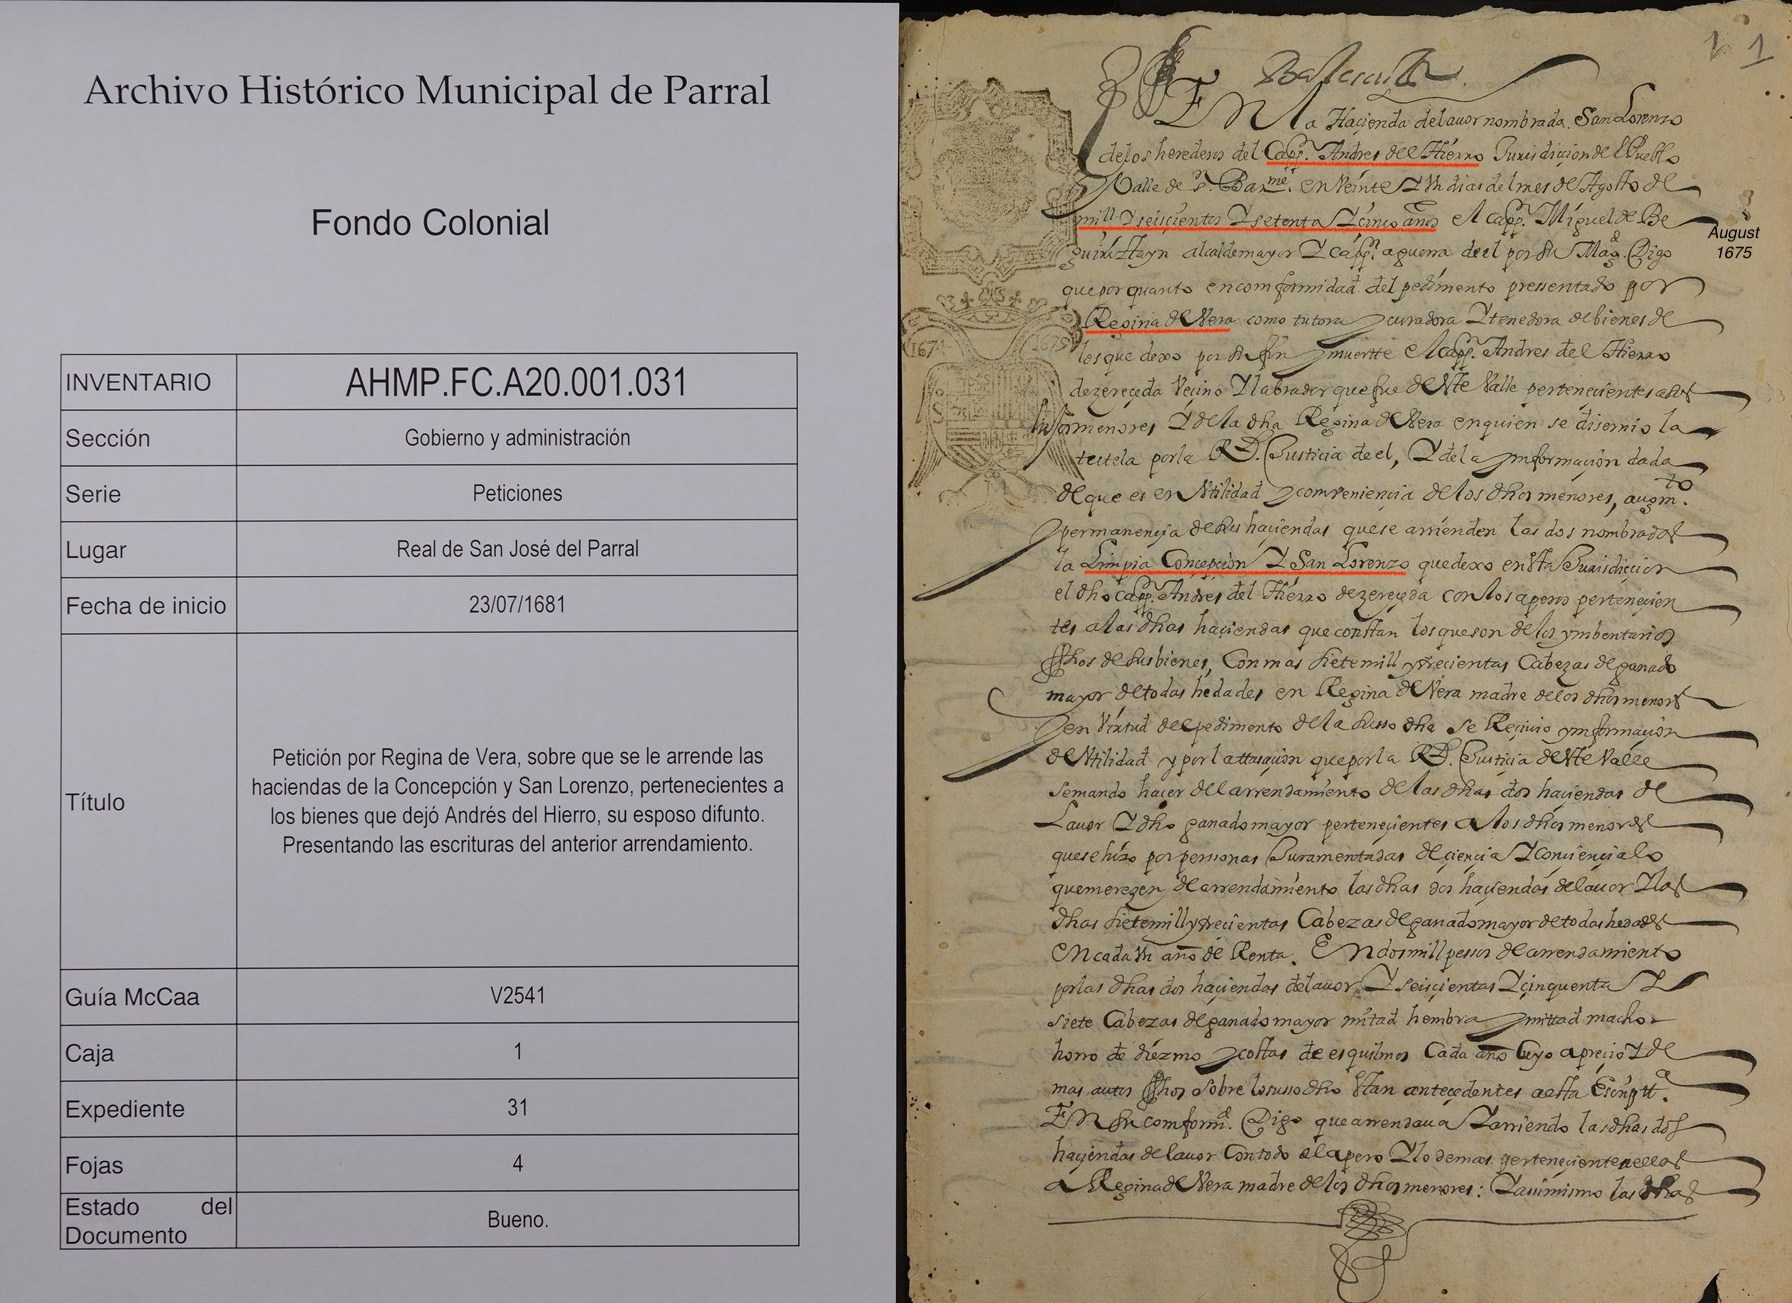 Archivo Histórico Municipal de Parral
Fondo Colonial
INVENTARIO AHMP.FC.A20.001.031
Sección Gobierno y administración
Serie Peticiones
Lugar Real de San José del Parral
Fecha de inicio 23/07/1681
Título Petición por Regina de Vera, sobre que se le arrende las
haciendas de la Concepción y San Lorenzo, pertenecientes a
los bienes que dejó Andrés del Hierro, su esposo difunto.
Presentando las escrituras del anterior arrendamiento.
Guía McCaa V2541
Caja 1
Expediente 31
Fojas 4
Estado del
Documento Bueno.
1
EN la Haçienda de lavor nombrada San Lorenzo
de los herederos del Capp.n Andres del Hierro Jurisdiçion del Pueblo
Valle de S. Barme. en Veinte Y Vn dias del mes de Agosto de
mill Y seisçientos Y setenta Y cinco años el capp.n Miguel de Be
guiriztayn alcalde mayor Y capp.n a guerra de el por su Mag.d Digo
que por quanto en comformidad del pedimento pressentado por
Regina de Vera como tutora y curadora Y tenedora de bienes de
los que dexo por su fin y muertte el Capp.n Andres del Hierro
de zereçeda Veçino Y labrador que fue de Vte Valle perteneçientes a sus
hijos menores Y de la dha Regina de Vera en quien se disernio la
tutela por la Rl. Justicia de el, Y de la ynformaçion dada
de que es en Vtilidad y comveniençia de los dhos menores, augm.to
y permanençia de sus haçiendas que se arrienden las dos nombradas
la Limpia Conçepçion Y San Lorenzo que dexo en Vta Jurisdiçion
el dho capp.n Andres del Hierro de zereçeda con los aperos perteneçien
tes a las dhas haçiendas que constan los que son de los ymbentarios
ffhos de sus bienes, Con mas siete mill y treçientas Cabezas de ganado
mayor de todas hedades en Regina de Vera madre de los dhos menores
y en Virtud del pedimento de la susso dha se Reçivio ynformaçion
de Vtilidad y por la tasaçion que por la Rl. Justiçia de Vte Valle
se mando haçer del arrendamiento de las dhas dos haçiendas de
Lavor Y dho ganado mayor perteneçientes a los dhos menores
que se hizo por personas Juramentadas de çiençia Y conçiençia lo
que mereçen de arrendamiento las dhas dos haçiendas de lavor Y las
dhas siete mill y treçientas Cabezas de ganado mayor de todas hedades
en cada Vn año de Renta. En dos mill pessos de arrendamiento
por las dhas dos haçiendas de lavor Y seisçientas Y çinquenta Y
siete Cabezas de ganado mayor mitad hembra y mittad macho
horro de diezmo y costas de esquilmos Cada año Cuyo apreçio Y de
mas autos ffhos sobre lo susso dho Vtan anteçedentes a esta Escriptt.a
EN su comform.d Digo que arrendava Y arriendo las dhas dos
haçiendas de lavor Con todo el apero Y lo demas perteneçiente a ellas
a Regina de Vera madre de los dhos menores: Y asimismo las dhas
1674
1675
August
1675